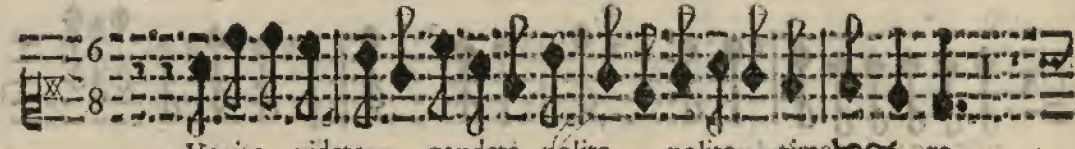 6
8
Venite videte, gaudete nolite, nolite timere